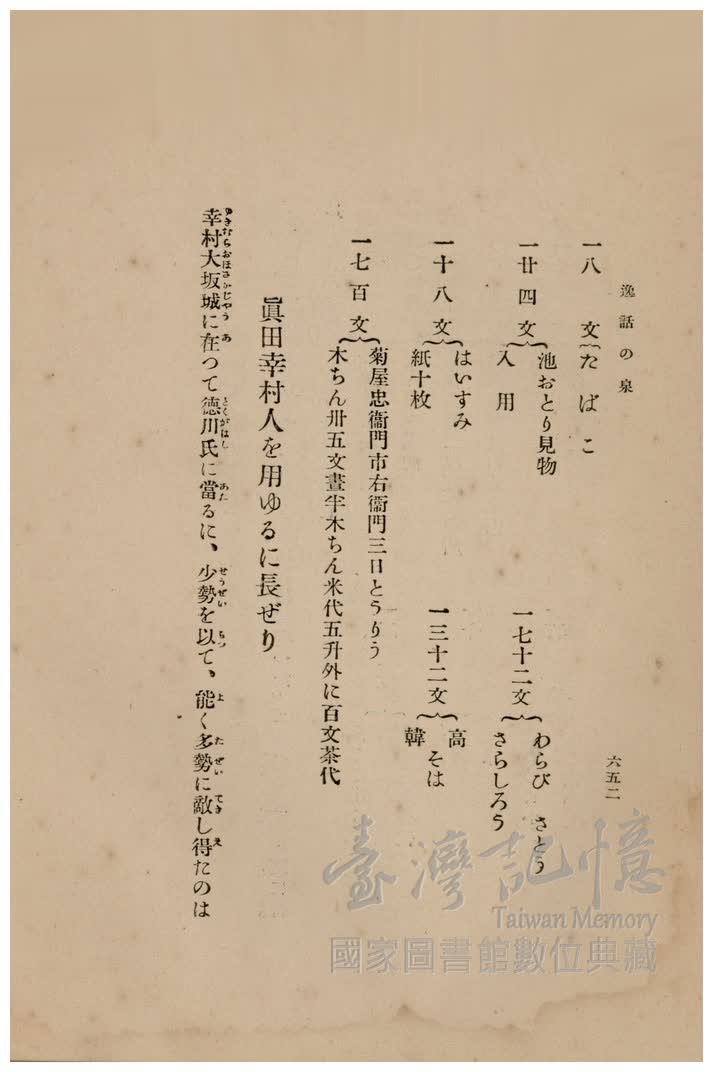 逸話の泉
六五二
一八文 たばこ
一廿四文 池おとり見物
入用
一七十二文 わらび さとう
さらしろう
一十八文 はいすみ
紙十枚
一三十二文 高
そは
韓
一七百文 菊屋忠衞門市右衞門三日とうりう
木ちん卅五文晝半木ちん米代五升外に百文茶代
眞田幸村人を用ゆるに長ぜり
幸村大坂城に在つて德川氏に當るに、少勢を以て、能く多勢に敵し得たのは
臺灣記憶
Taiwan Memory
國家圖書館數位典藏